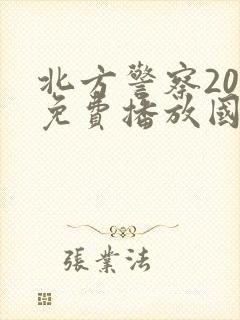 北方警察20
免費播放國
張業法